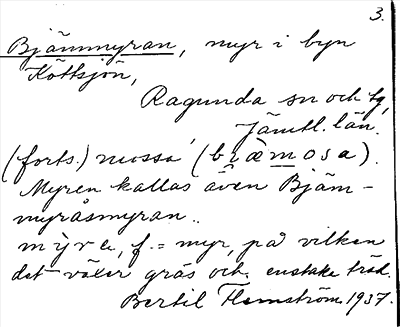 3.
Bjämmyran, myr i byn
Köttsjön,
Ragunda sn och tg,
Jämtl. län.
(forts.) mossa (bràmosa).
Myren kallas även Bjäm-
myråsmyran.
mỳre, f. = myr, på vilken
det växer gräs och enstaka träd.
Bertil Flemström 1937.